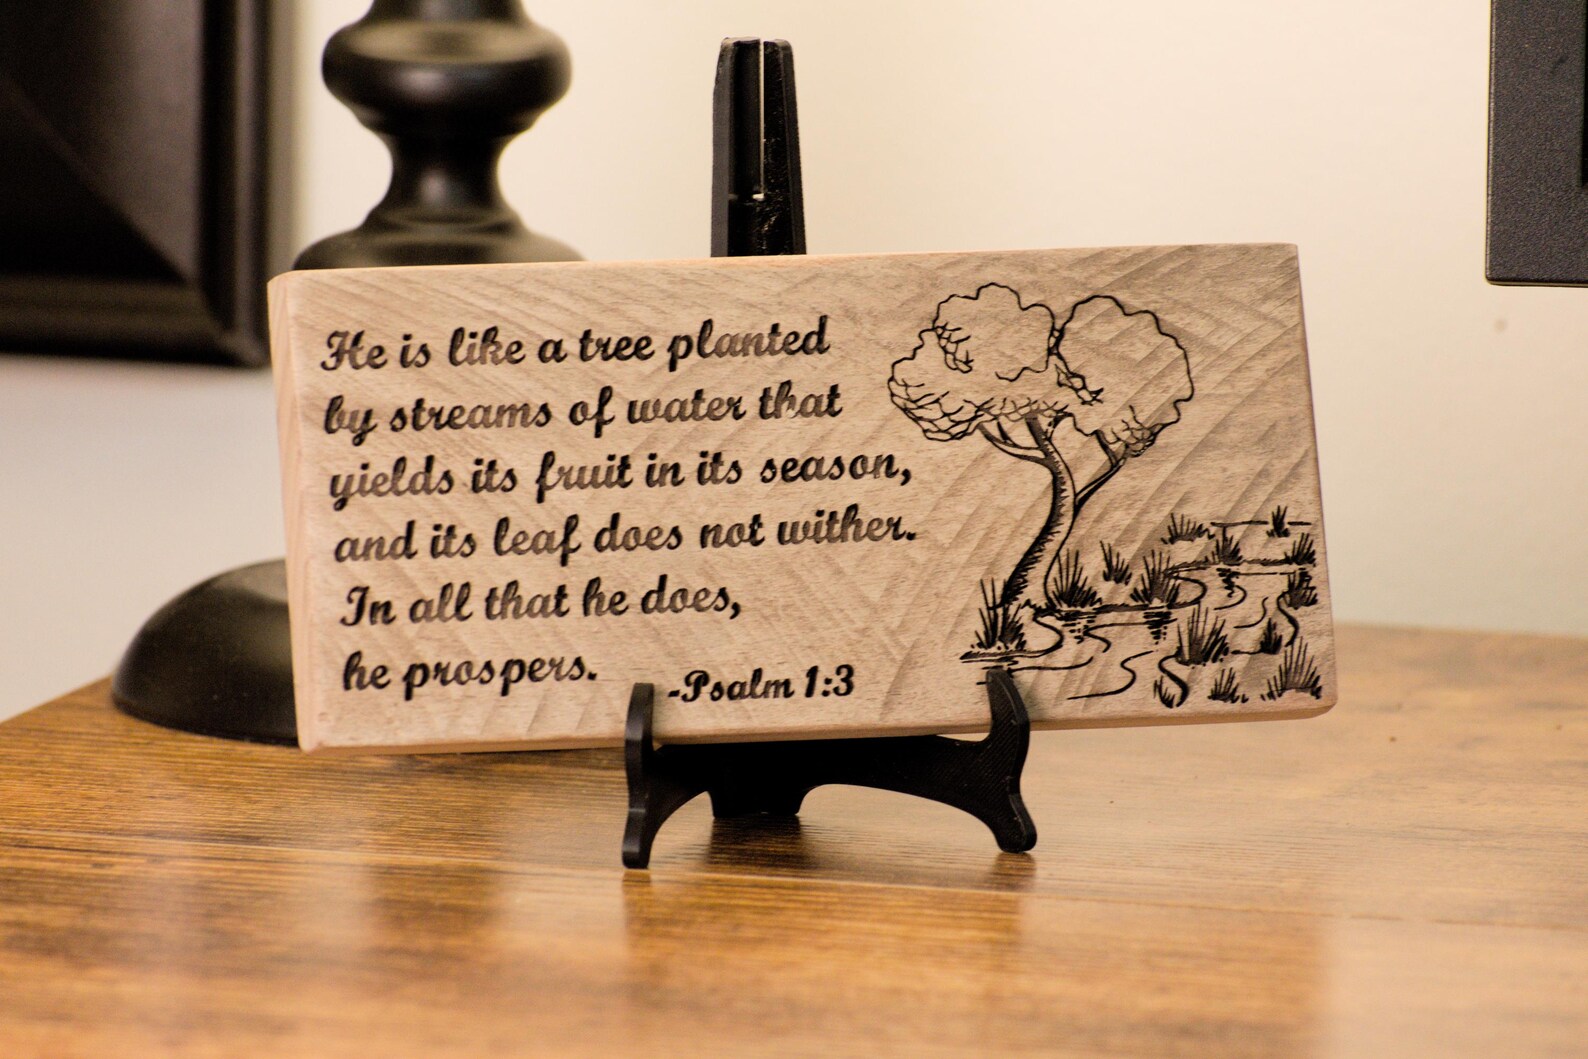 He is like a tree planted
by streams of water that
yields its fruit in its season,
and its leaf does not wither.
In all that he does,
he prospers.
-Psalm 1:3